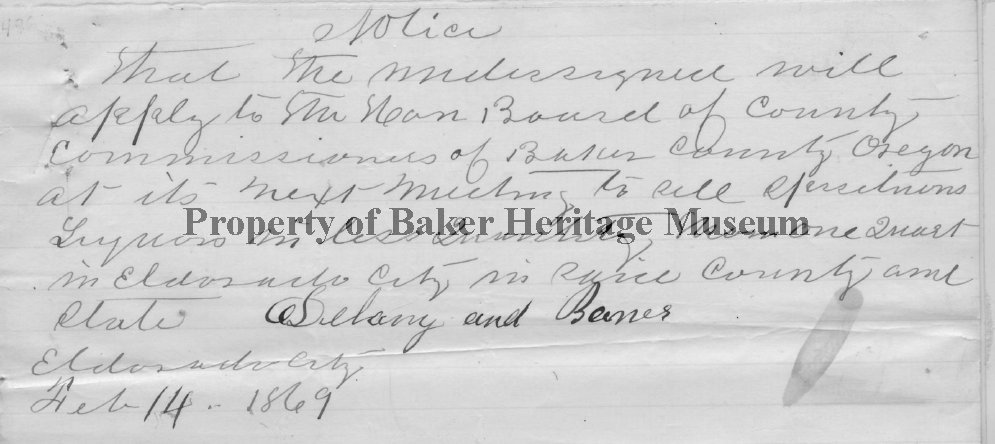 Notice
That the undersigned will
apply to the Hon Board of County
Commissioners of Baker County Oregon
at its next Meeting to sell
Property of Baker Heritage Museum
Liquors in less Quantity than one Quart
in Eldorado City in said County and
State Delany and
Eldorado City
Feb 14 - 1869